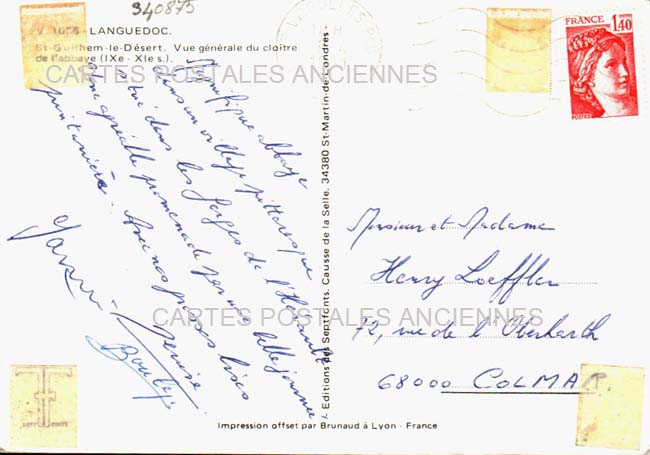 340875
1056 - LANGUEDOC.
St-Guilhem-le-Désert. Vue générale du cloître
de l'abbaye (IXe - XIe s.).
CARTES POSTALES ANCIENNES
Magnifique abbaye
dans un village pittoresque
situé dans les Gorges de l'Hérault
Une agréable promenade par une belle journée
printanière. Avec nos grosses bises
Denise
Editions des Septfonts, Causse de la Selle, 34380 St-Martin-de-Londres -
FRANCE
1,40
POSTES
Monsieur et Madame
Henry Loeffler
72, rue de l'Oberharth
68000 COLMAR
CARTES POSTALES ANCIENNES
SEPT FONTS
Impression offset par Brunaud à Lyon - France